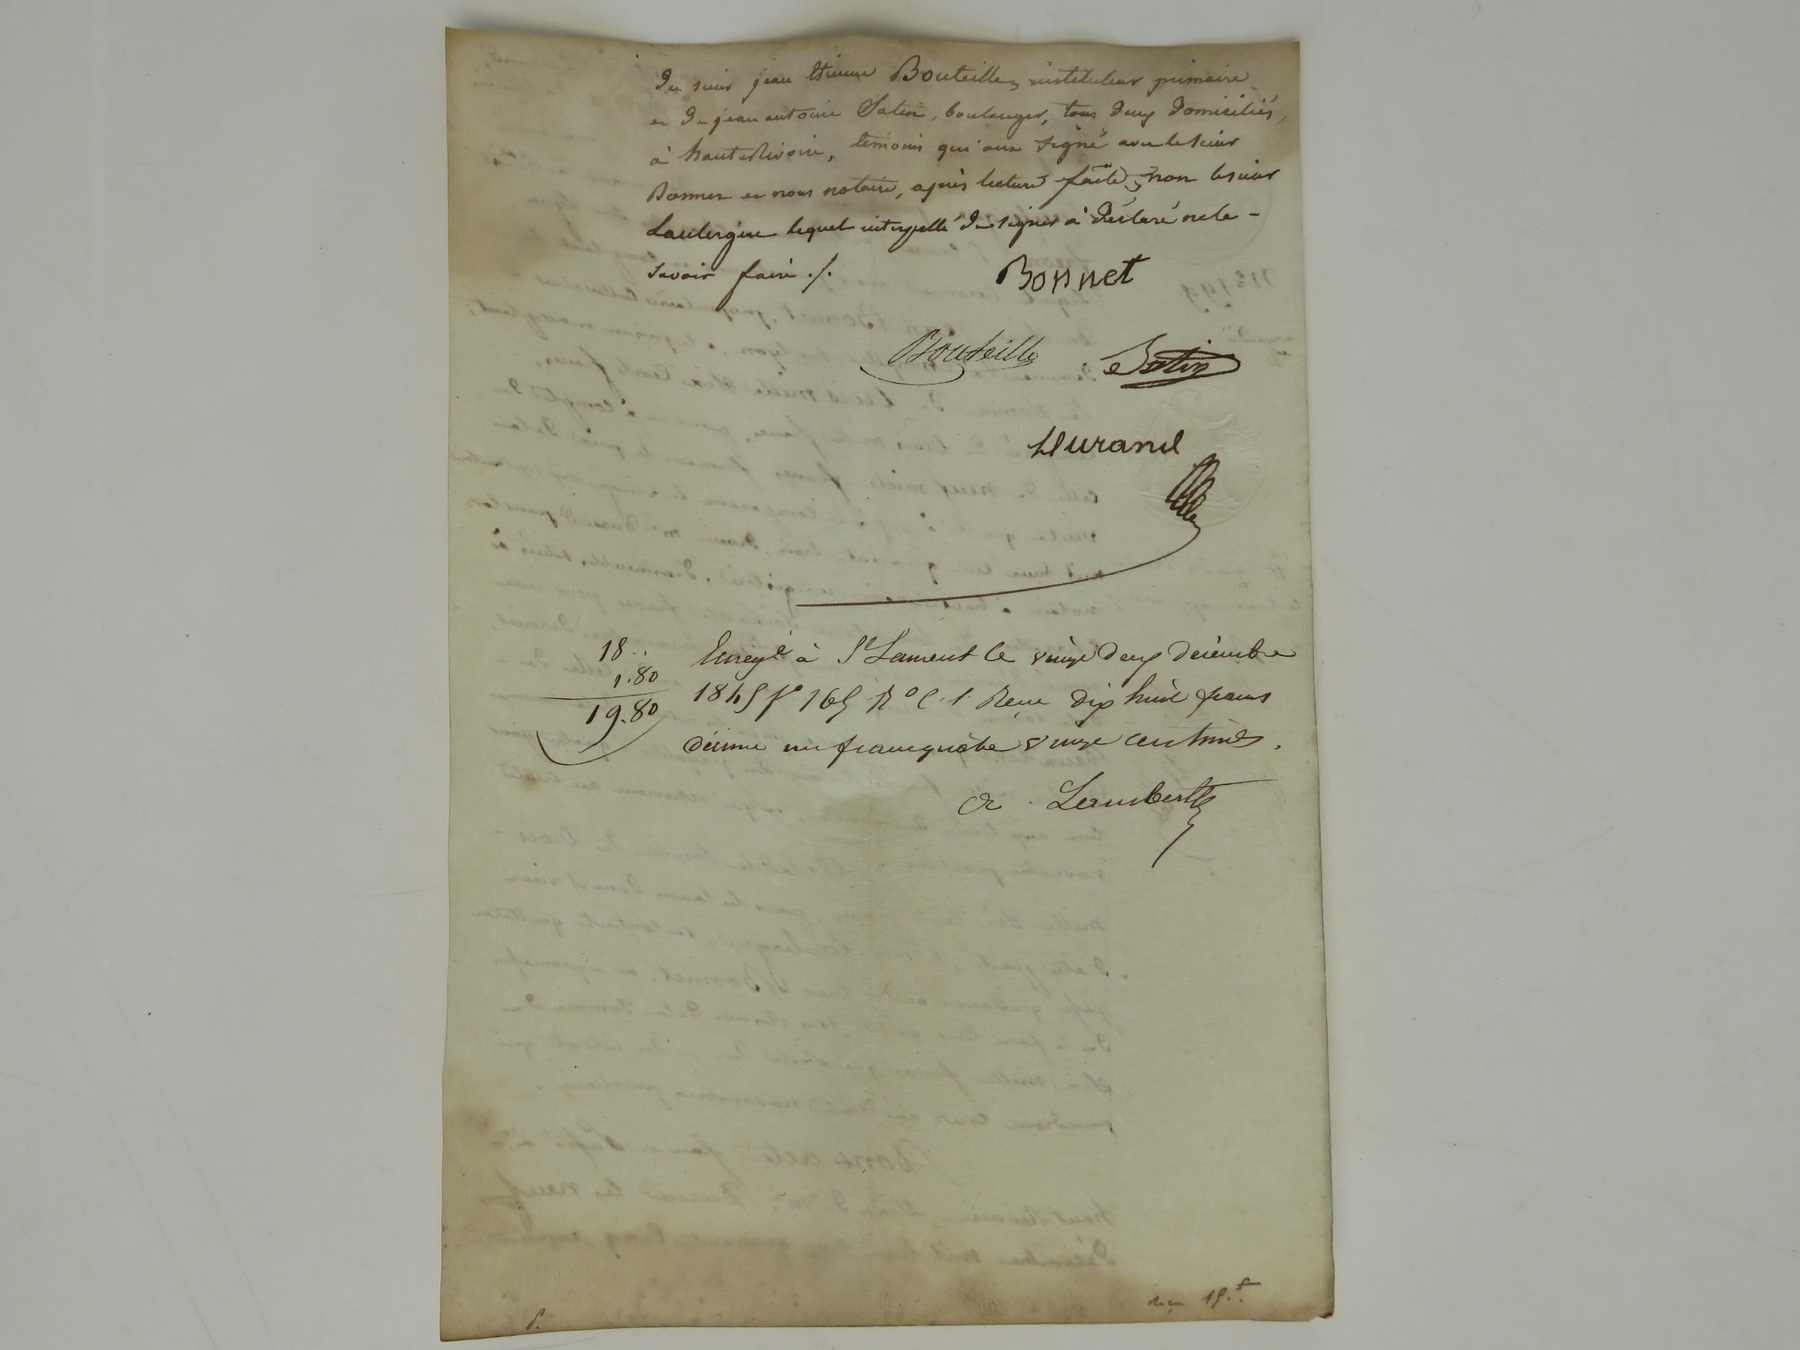 Du sieur jean Etienne Bouteille, instituteur primaire
et De jean antoine Satin, boulanger, tous deux Domiciliés,
à hauterivoire, témoins qui ont signé avec le sieur
Bonnet et nous notaire, après lecture faite, non le sieur
Laulergue lequel interpellé De signer a Déclaré ne le -
savoir faire ./.
Bonnet
Bouteille
Satin
Durand
18..
1.80
19.80
Enregé à St Laurent le vingt deux décembre
1845 fo 165 Ro C. 1 Reçu dix huit francs
décime un franc quatre vingt centimes.
Lambert
reçu 15.f